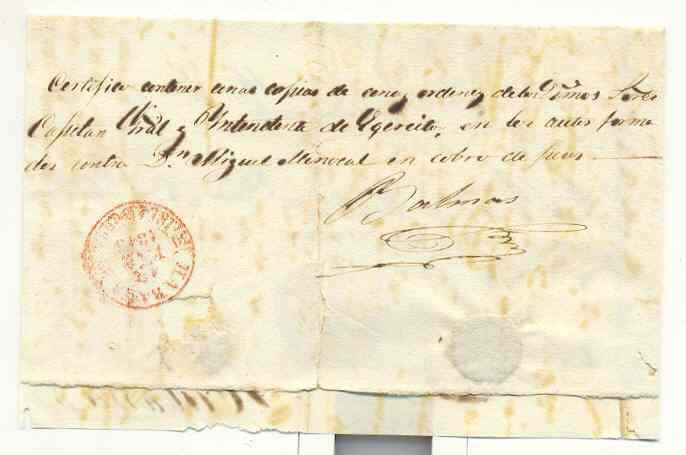 Certifico contener unas copias de unas ordenes de los Exmos Sres
Capitan Gral y Intendente de Egercito, en los autos forma
dos contra Dn Miguel Menocal en cobro de
Palmas
HABANA